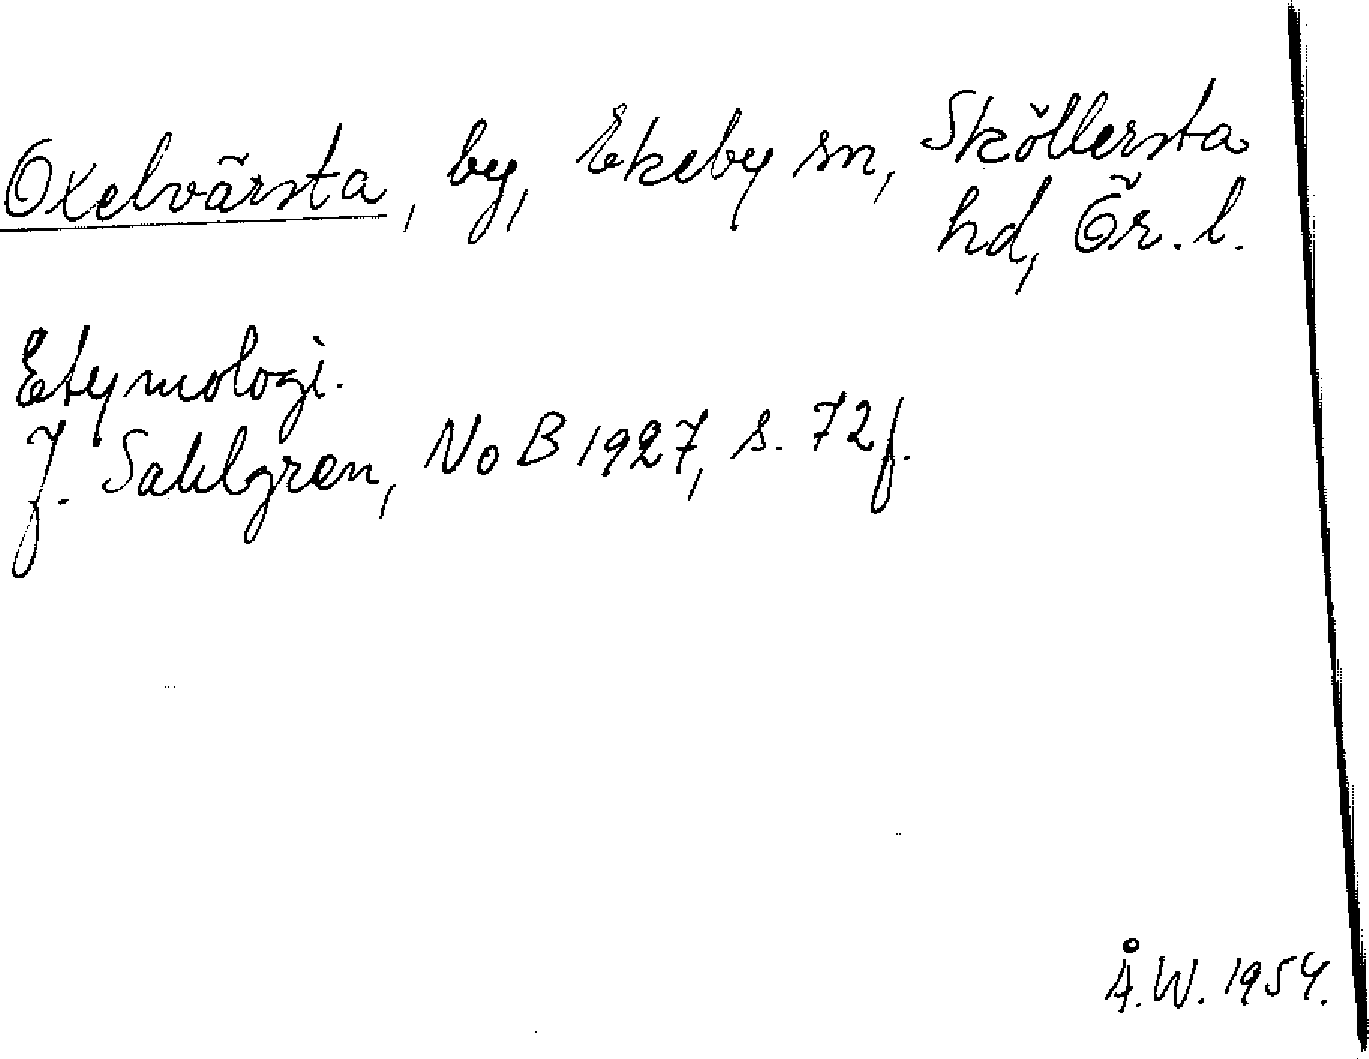 Oxelvärsta, by, Ekeby sn, Sköllersta
hd, Ör. l.
Etymologi.
J. Sahlgren, NoB 1927, s. 72f.
Å.W. 1954.